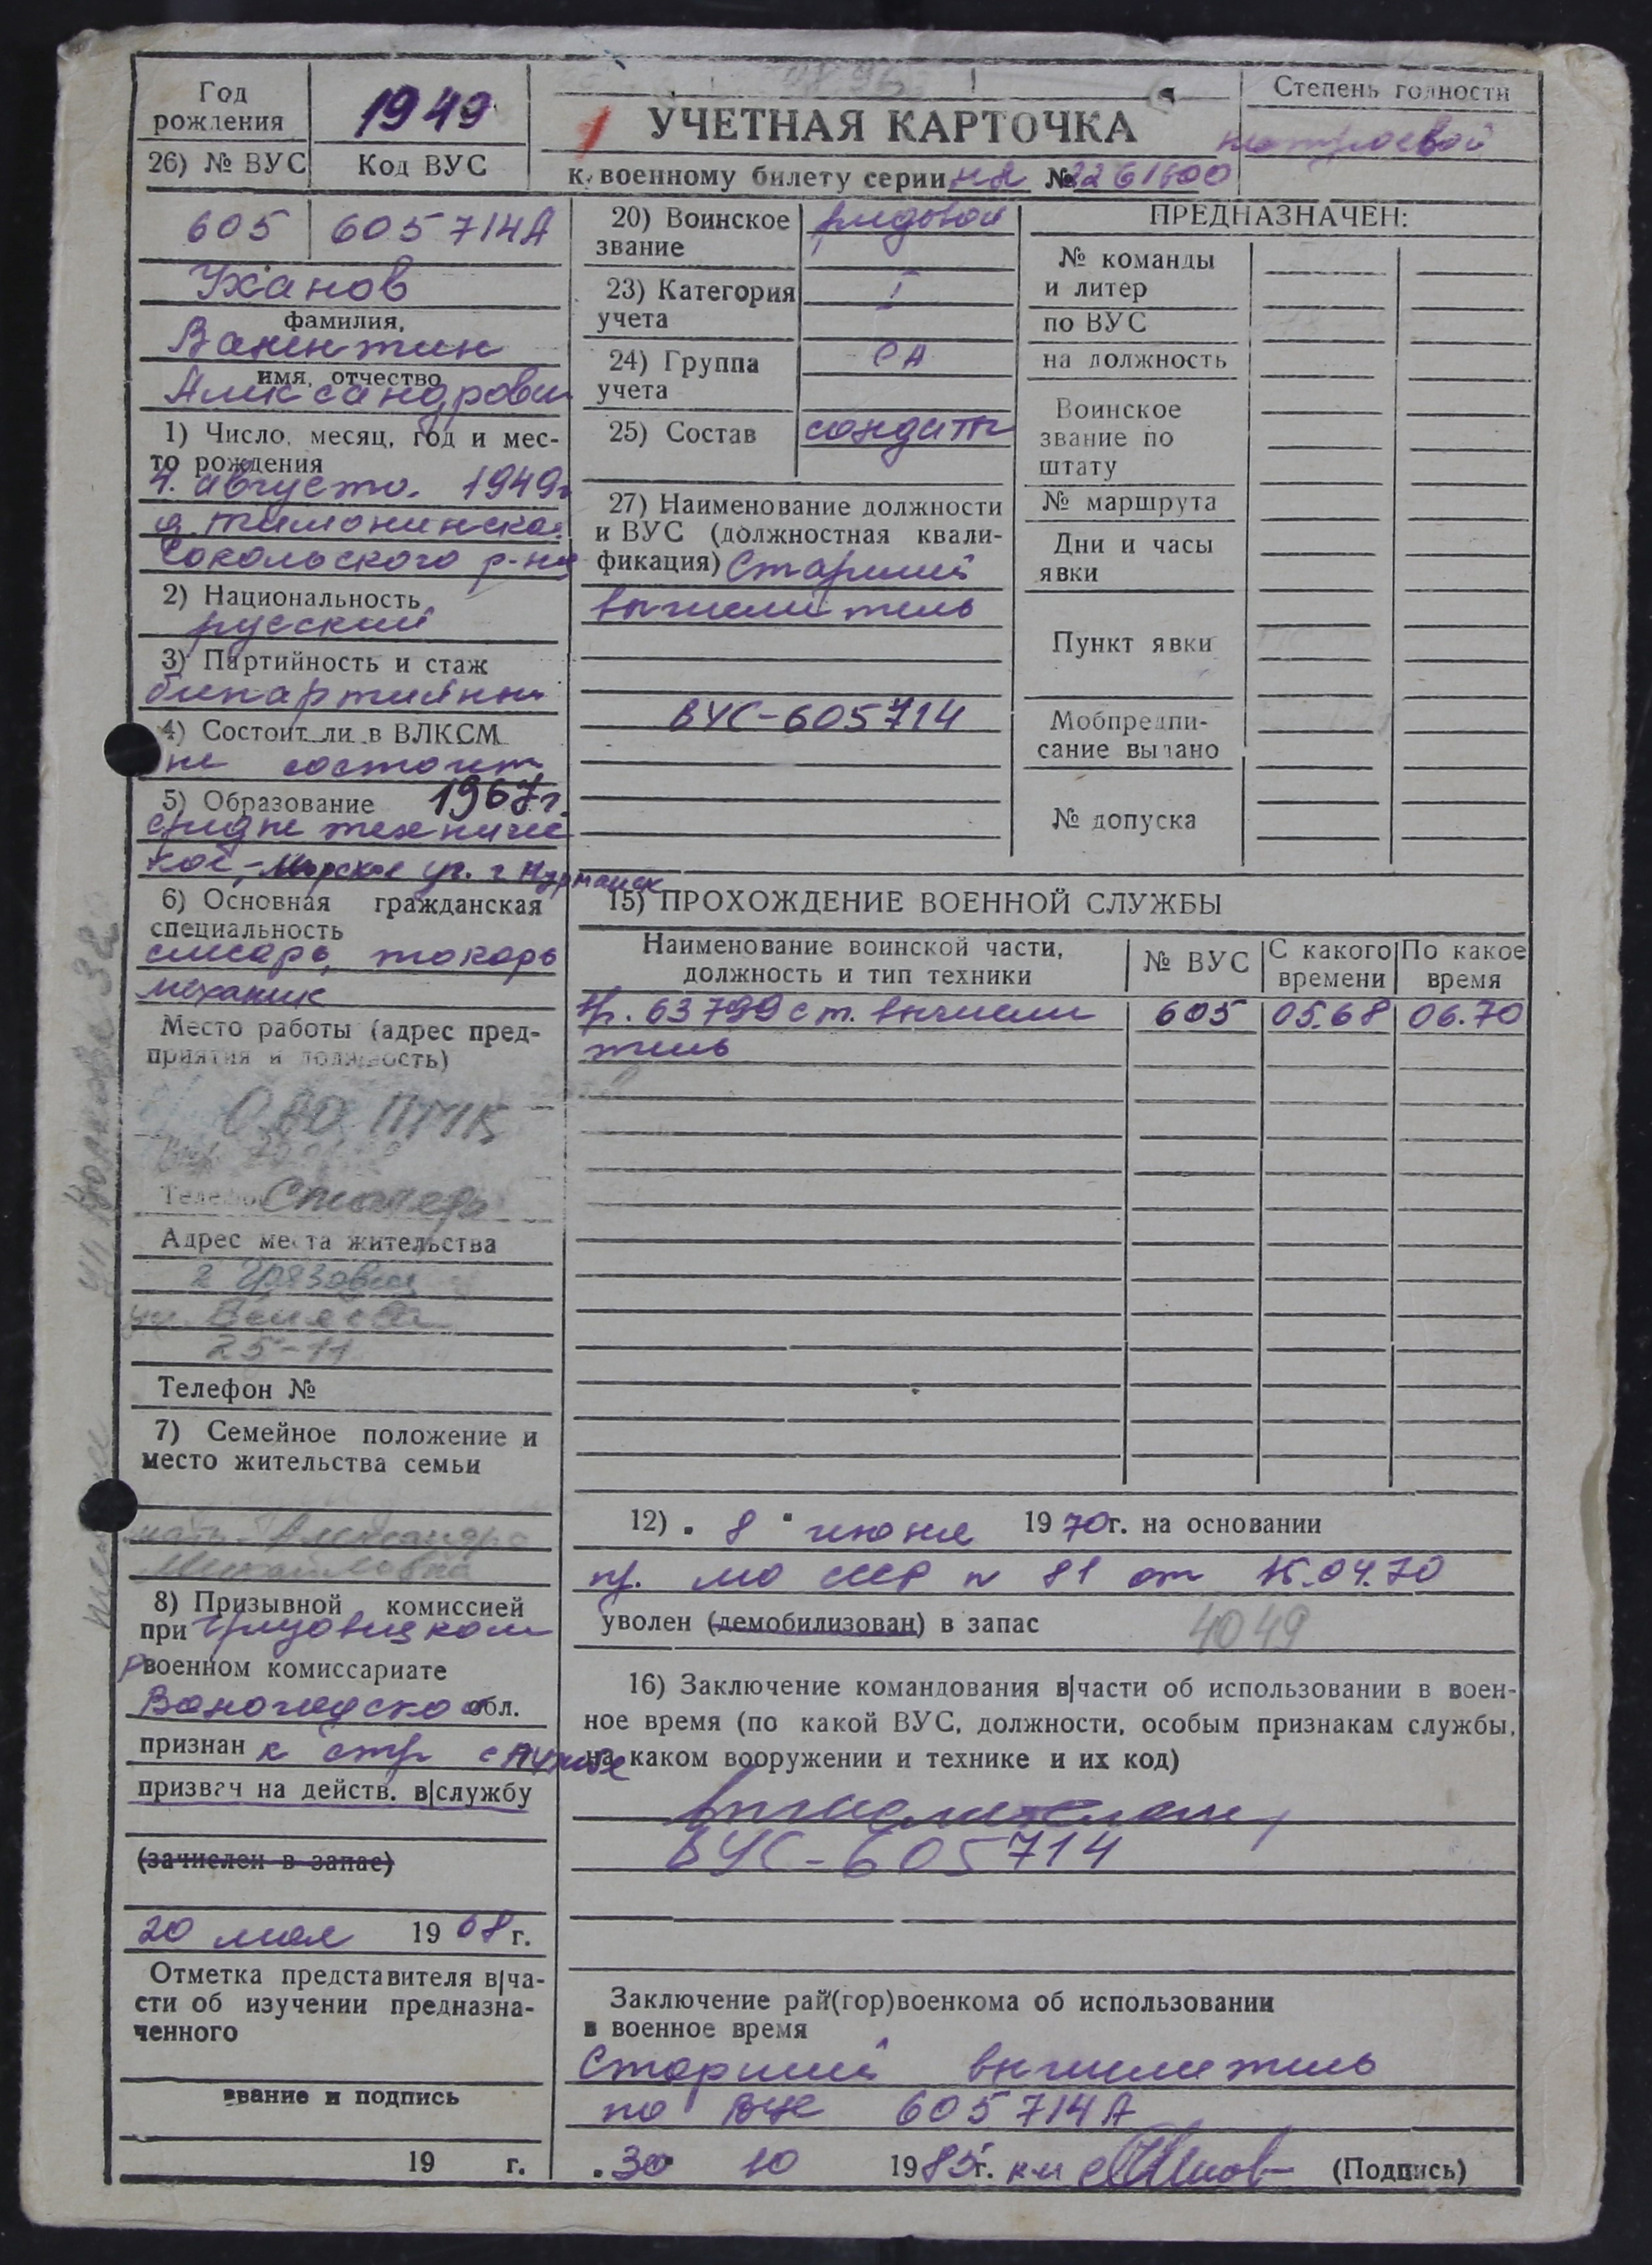 Год
рождения
1949
26) № ВУС
Код ВУС
УЧЕТНАЯ КАРТОЧКА
к военному билету серии НЯ № 2261600
Степень годности
нестроевой
605
605714А
Уханов
фамилия,
Валентин
имя, отчество
Александрович
1) Число, месяц, год и мес-
то рождения
4. августа. 1949г
д. Тимонинская
Сокольского р-на
2) Национальность
русский
3) Партийность и стаж
беспартийный
4) Состоит ли в ВЛКСМ
не состоит
5) Образование 1967г.
средне техничес
кое, - Морское уч. г Мурманск
6) Основная гражданская
специальность
слесарь, токарь
механик
Место работы (адрес пред-
приятия и должность)
ОАО ПМК
Телефон
Столяр
Адрес места жительства
г Грязовец
ул.
25-11
Телефон №
7) Семейное положение и
место жительства семьи
мать - Александра
Михайловна
8) Призывной комиссией
при Грязовецком
Рвоенном комиссариате
Вологодской обл.
признан к стр службе
призван на действ. в|службу
(зачислен в запас)
20 мая 1968г.
Отметка представителя в|ча-
сти об изучении предназна-
ченного
звание и подпись
19 г.
20) Воинское
звание
рядовой
23) Категория
учета
I
24) Группа
учета
СА
25) Состав
солдаты
27) Наименование должности
и ВУС (должностная квали-
фикация) Старший
вычислитель
ВУС-605714
ПРЕДНАЗНАЧЕН:
№ команды
и литер
по ВУС
на должность
Воинское
звание по
штату
№ маршрута
Дни и часы
явки
Пункт явки
Мобпредпи-
сание выдано
№ допуска
15) ПРОХОЖДЕНИЕ ВОЕННОЙ СЛУЖБЫ
Наименование воинской части,
должность и тип техники
№ ВУС
С какого
времени
По какое
время
63799 ст. вычисли 605 05.68 06.70
тель
12) „ 8 " июня 1970г. на основании
пр. МО СССР № 81 от 15.04.70
уволен (демобилизован) в запас
4049
16) Заключение командования в|части об использовании в воен-
ное время (по какой ВУС, должности, особым признакам службы,
на каком вооружении и технике и их код)
вычислителем,
ВУС-605714
Заключение рай(гор)военкома об использовании
в военное время
Старший вычислитель
по ВУС 605714А
„30" 10 1985г. (Подпись)